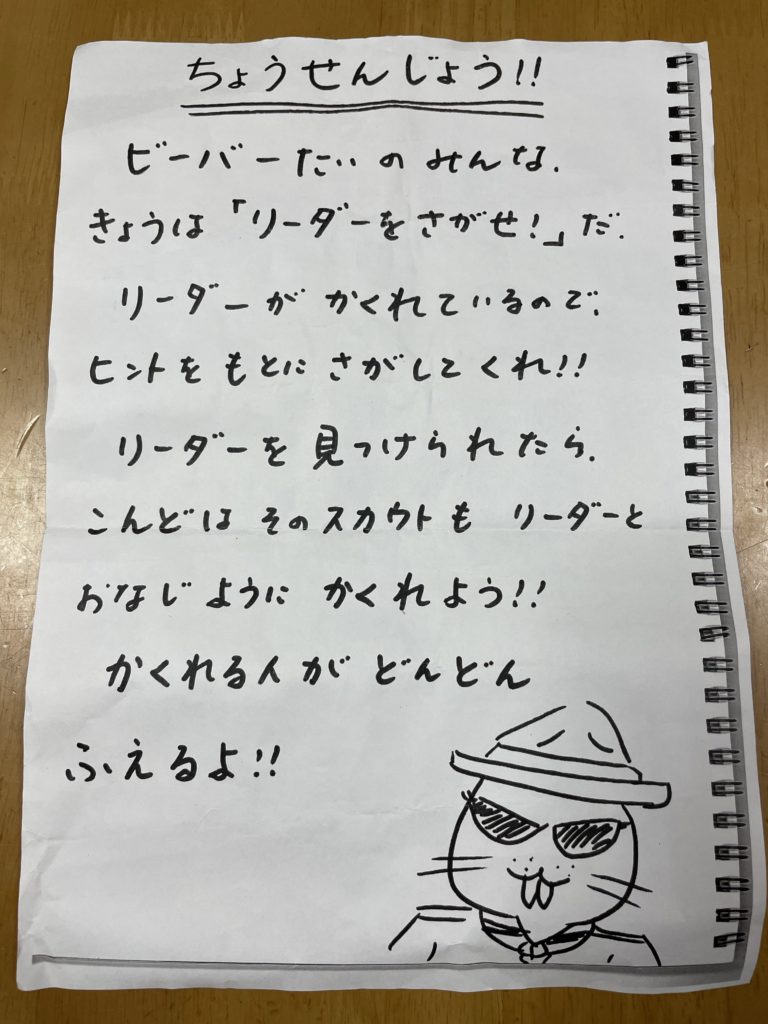 ちょうせんじょう!!
ビーバーたいのみんな、
きょうは「リーダーをさがせ!」だ。
リーダーが かくれているので、
ヒントを もとに さがしてくれ!!
リーダーを 見つけられたら、
こんどは そのスカウトも リーダーと
おなじように かくれよう!!
かくれる人が どんどん
ふえるよ!!